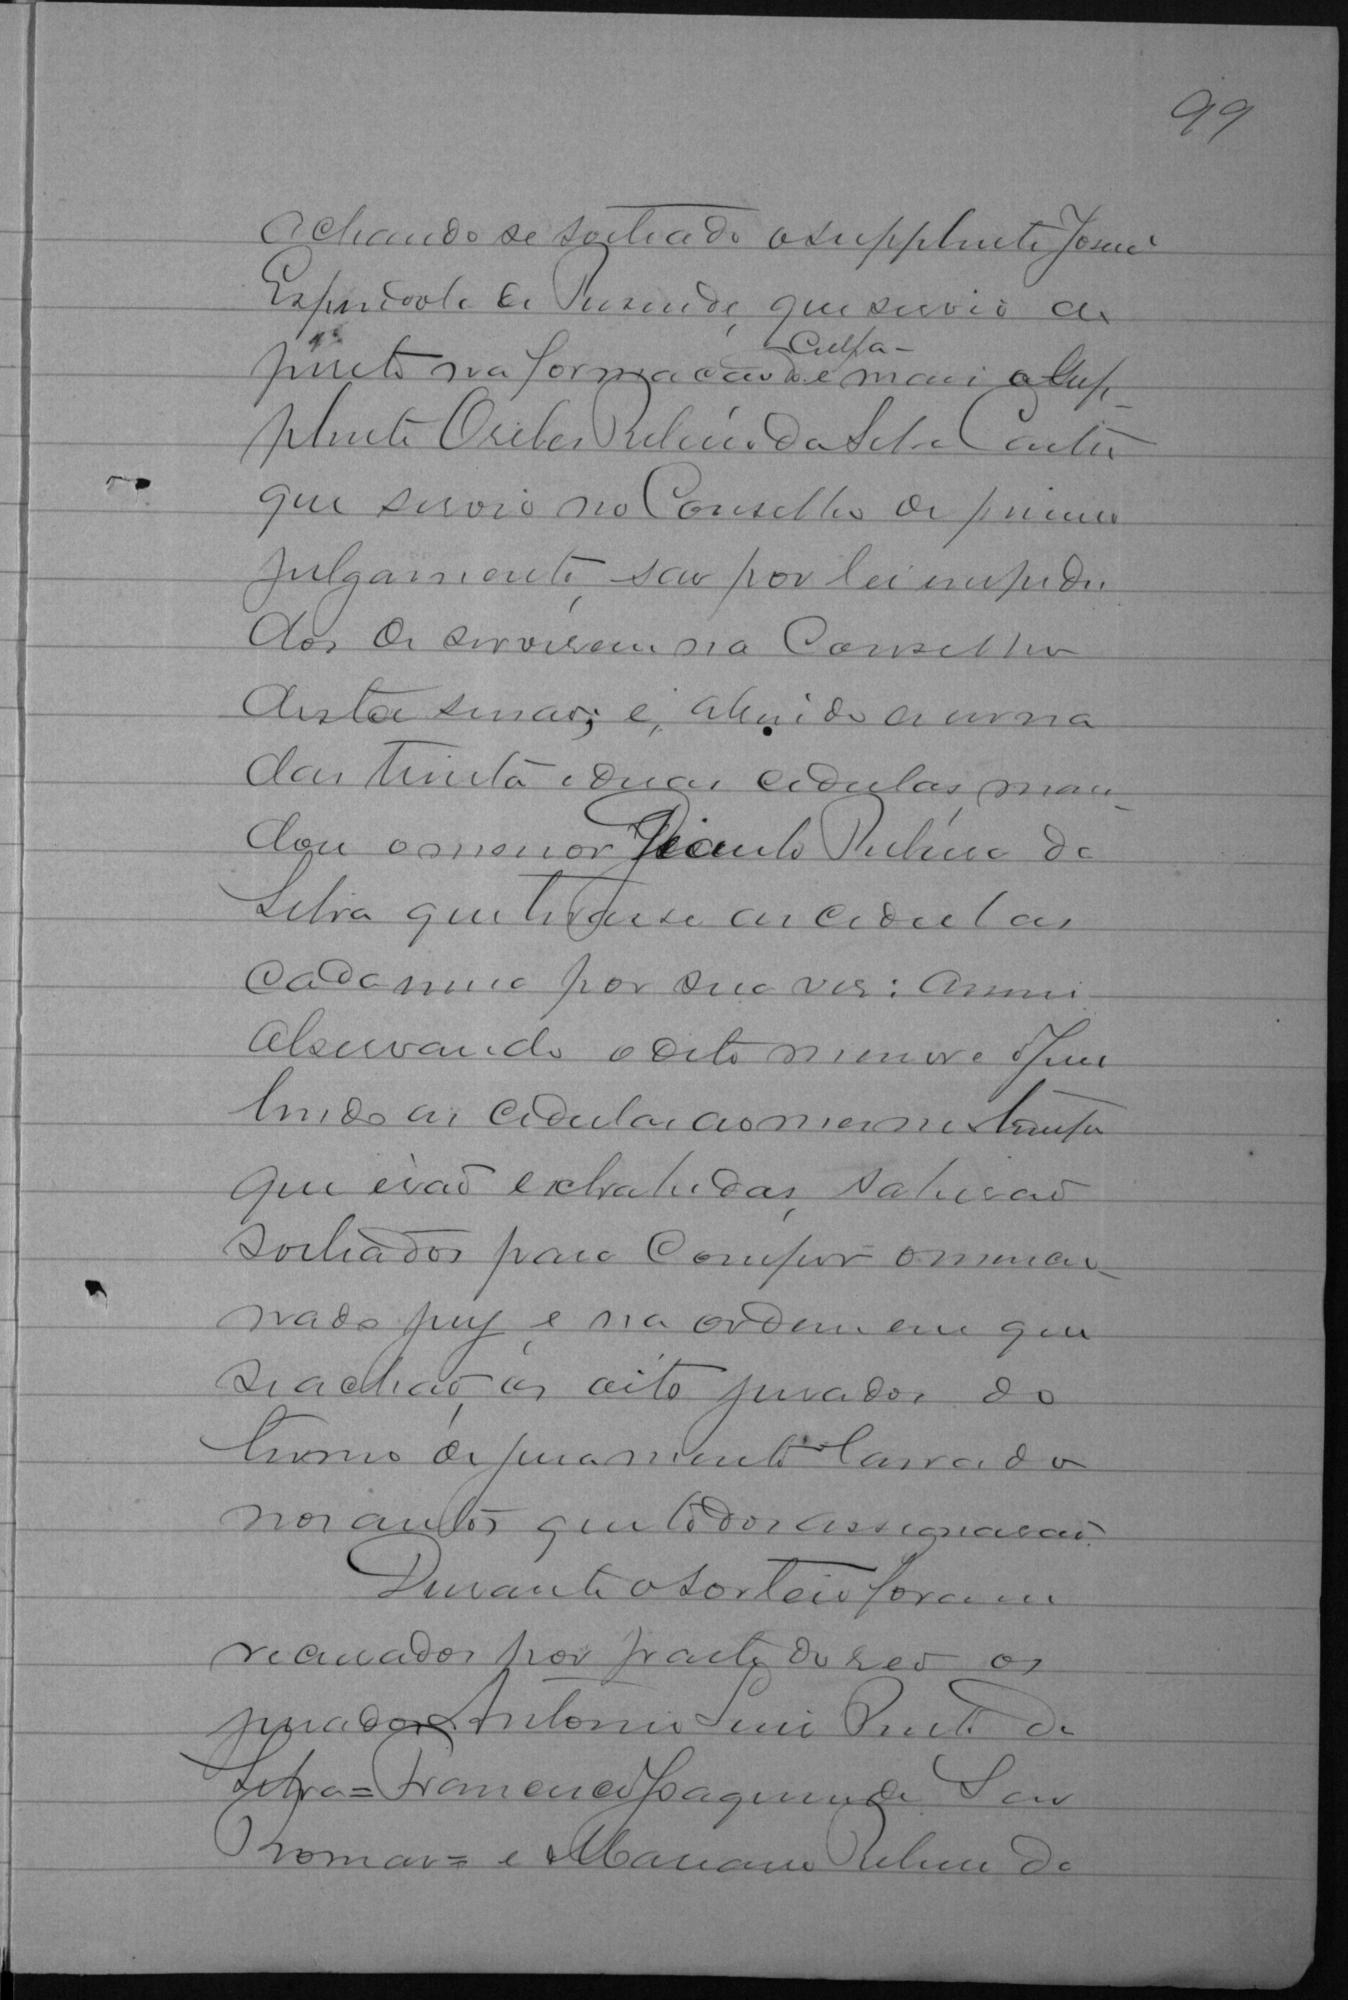 99
achando se sorteado o supplente José
Espindola de Rezende, que servio de
perito na formação de culpa e mais o Sup-
plente Ribeiro da Silva
que servio no Conselho de primeiro
julgamento, são por lei impedi
dos de servirem no Conselho
desta sessão; e, abrindo a urna
das trinta e duas cedulas, man-
dou o menor Ribeiro da
Silva que tirasse as cedulas
cada uma por sua vez: assim
observando o dito menor e
lendo as cedulas ao mesmo tempo
que erão extrahidas, sahirão
sorteados para compor o mencio-
nado jury, e na ordem em que
se achão, os oito jurados do
termo de juramento lavrado
nos autos que todos assignarão.
Durante o sorteio foram
recusados por parte do reo os
jurados Antonio Luis da
Silva = Francisco Joaquim de São
Romão = e Mariano Ribeiro da